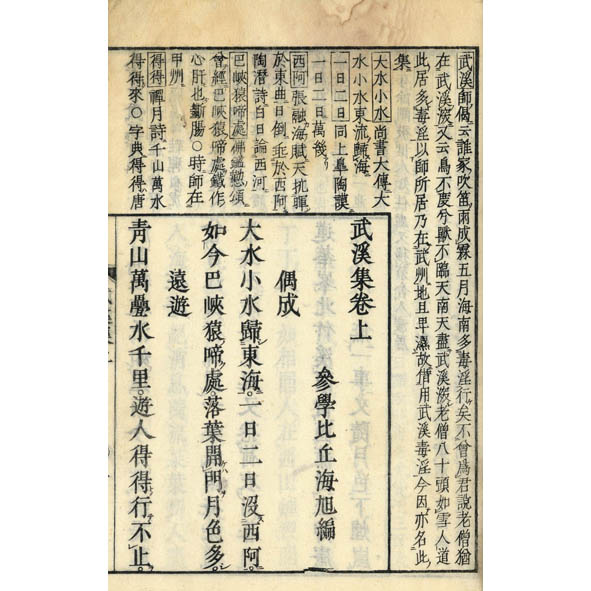 武溪師偈云誰家吹笛雨成霖五月海南多毒淫行矣不曾爲君説老僧猶
在武溪深又云鳥不慶兮獸不臨天南天盡武溪深老僧八十頭如雪人道
此居多毒淫以師所居乃在武州地且卑濕故借用武溪毒淫今因亦名此
集
大水小水尚書大傳大
水小水東流歸海
一日二日同上皐陶謨
一日二日萬幾
西阿張融海賦天抗暉
於東曲日倒垂於西阿
陶潛詩白日淪西河
巴峽猿啼處佛鑑勲頌
曾經巴峽猿啼處鐵作
心肝也斷膓○時師在
甲州
得得禪月詩千山萬水
得得來○字典得得唐
武溪集卷上
參學比丘海旭編
偶成
大水小水歸東海一日二日沒西阿
如今巴峽猿啼處落葉開門月色多
遠遊
青山萬疊水千里遊人得得行不止